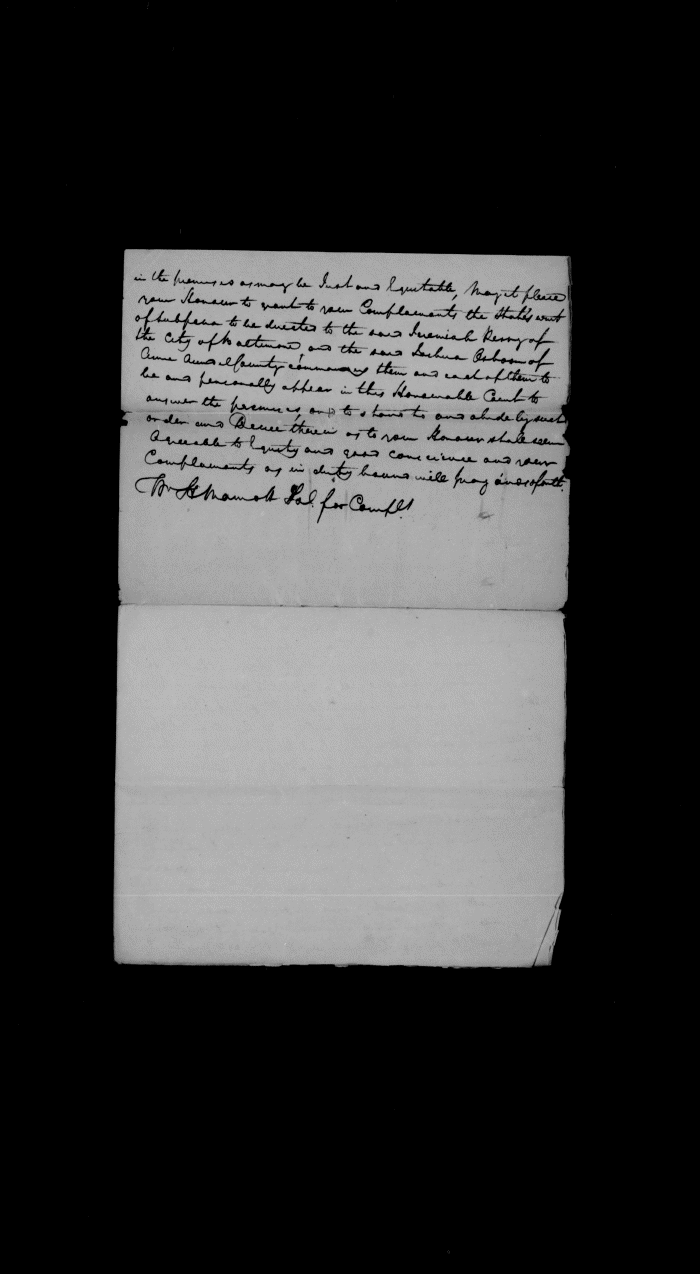 in the premises as may be Just and Equitable, May it please
your Honour to grant to your Complainants the State's writ
of Subpena to be directed to the said Jeremiah Perry of
the City of Baltimore and the said Joshua of
Anne Arundel County commanding them and each of them to
be and personally appear in this Honourable Court to
answer the premises and to stand to and abide by such
order and Decree therein as to your Honour shall seem
Agreeable to Equity and good conscience and your
Complainants as in duty bound will pray &c
Sol. for Complt